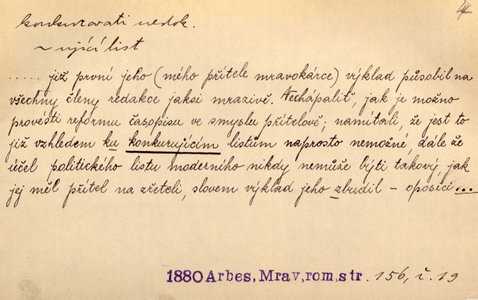 konkurovati nedok.
~ ující list
..... již první jeho (mého přítele mravokárce) výklad působil na
všechny členy redakce jaksi mrazivě. Nechápaliť, jak je možno
provésti reformu časopisu ve smyslu přítelově; namítali, že jest to
již vzhledem ku konkurujícím listům naprosto nemožné dále že
účel politického listu moderního nikdy nemůže býti takový, jak
jej měl přítel na zřeteli, slovem výklad jeho zbudil – oposici...
1880 Arbes, Mrav, rom, str. 156, č. 19